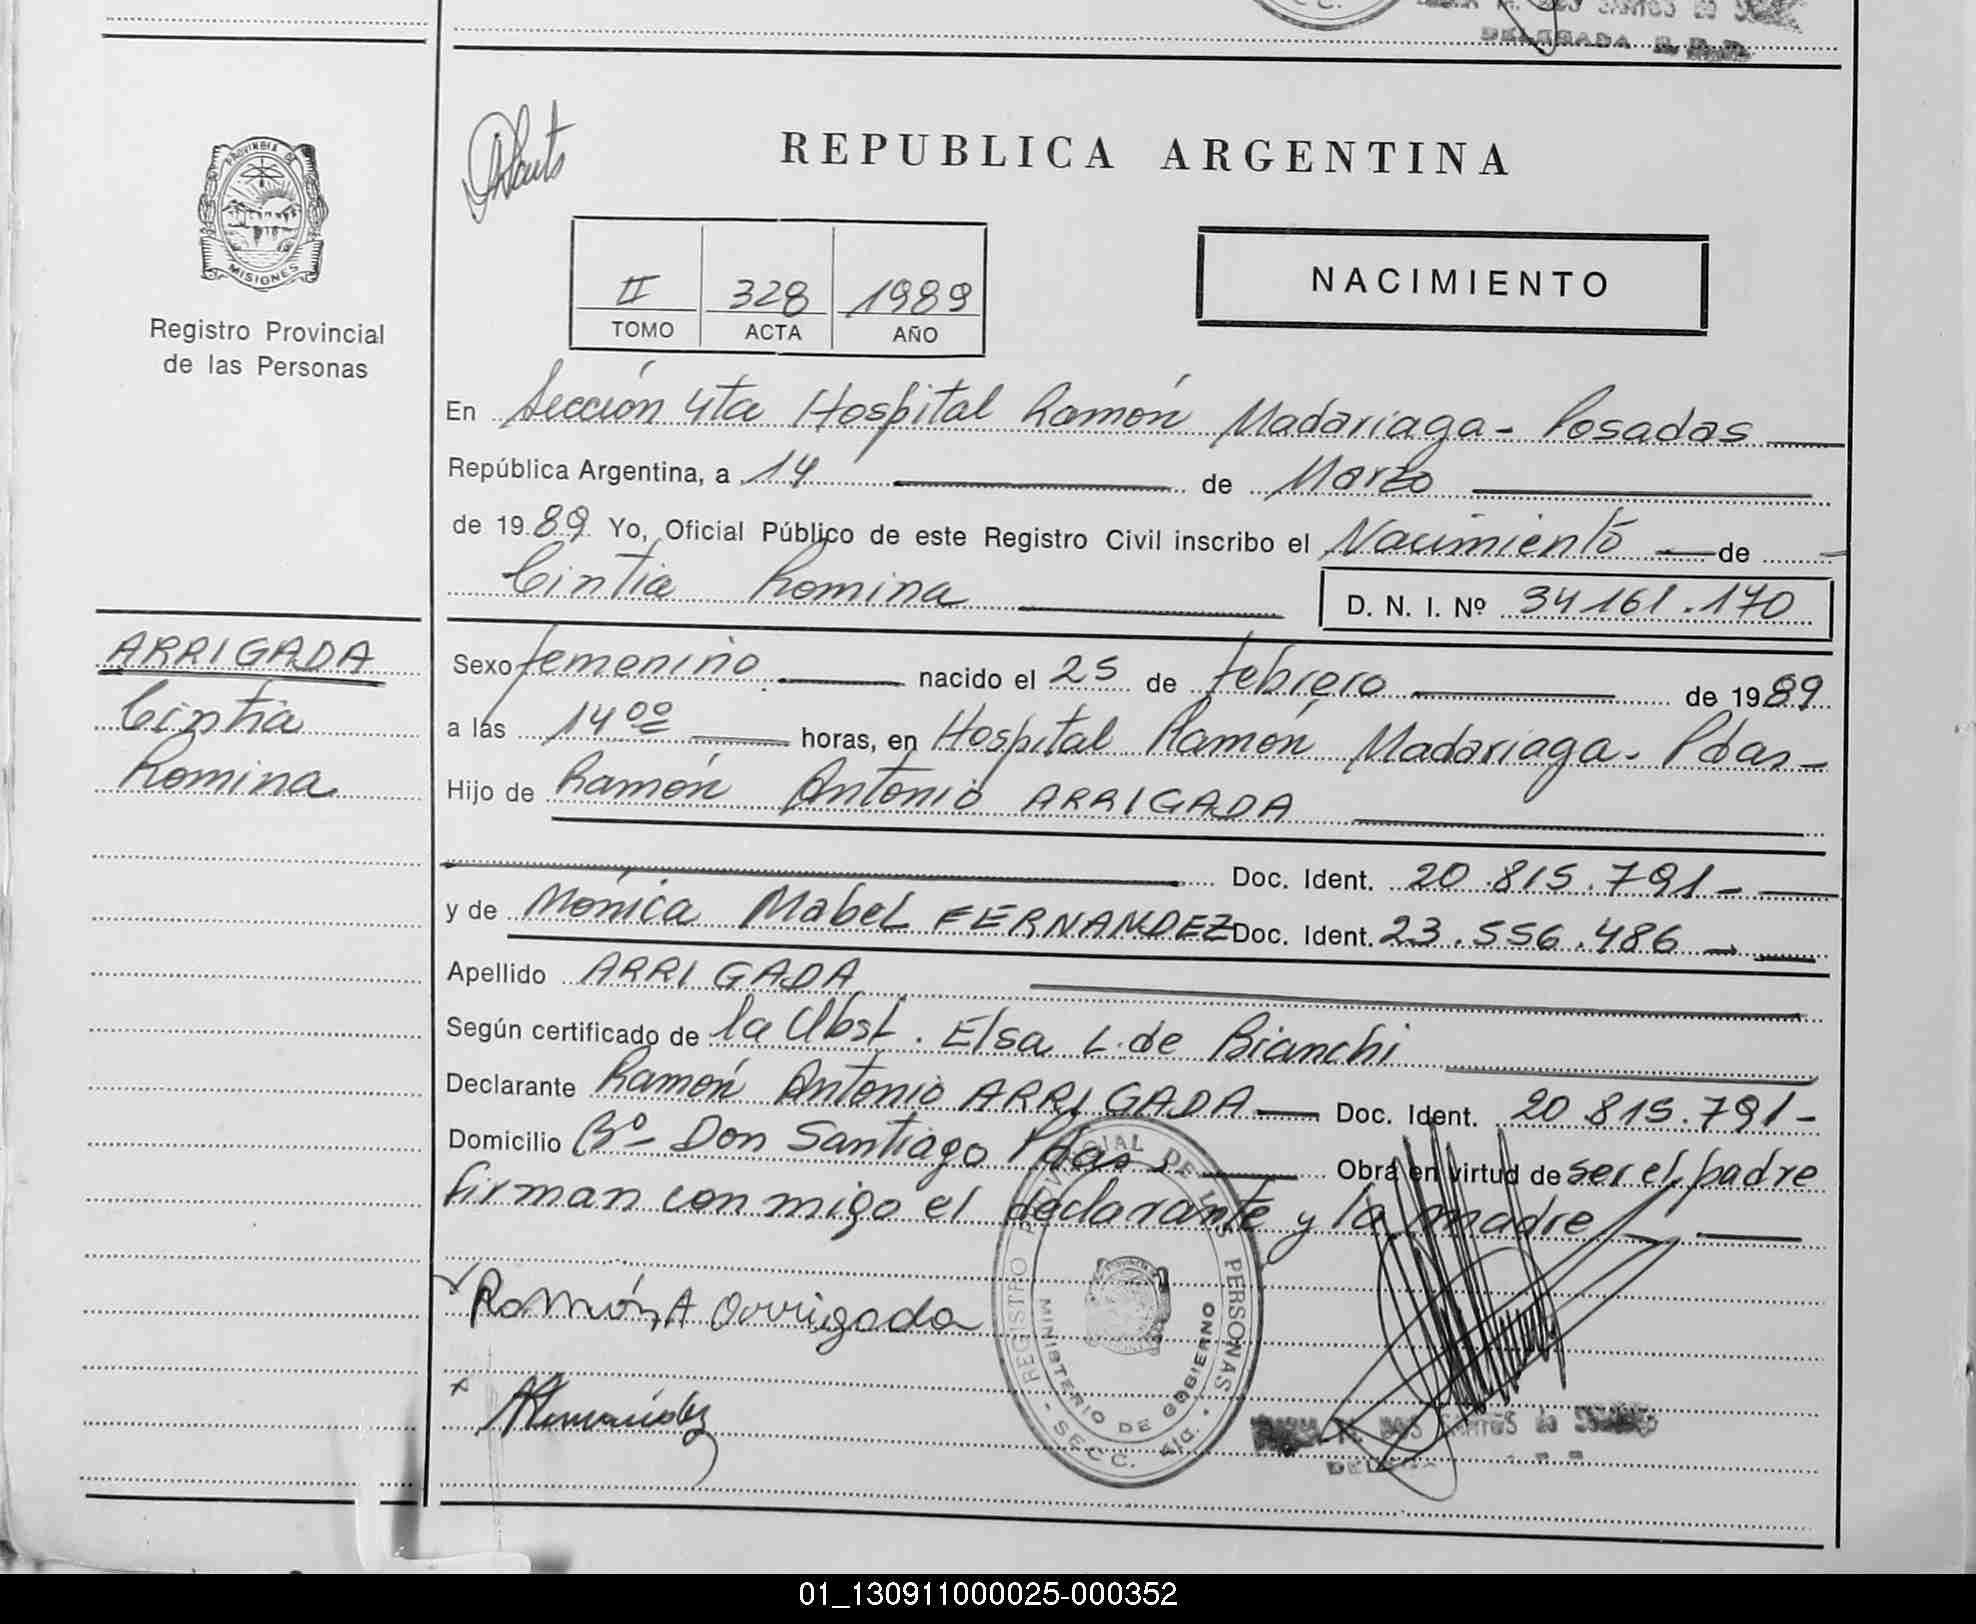 DELEGADA R. P. P.
PROVINCIA DE
MISIONES
Registro Provincial
de las Personas
REPUBLICA ARGENTINA
II 328 1989
TOMO ACTA AÑO
NACIMIENTO
En Sección 4ta Hospital Ramón Madariaga - Posadas
República Argentina, a 14 de Marzo
de 1989 Yo, Oficial Público de este Registro Civil inscribo el Nacimiento de
Cintia Romina D. N. I. Nº 34161.170
ARRIGADA
Cintia
Romina
Sexo femenino nacido el 25 de febrero de 1989
a las 14 00 horas, en Hospital Ramón Madariaga - Pdas -
Hijo de Ramón Antonio ARRIGADA
Doc. Ident. 20.815.791 -
y de Mónica Mabel FERNANDEZ Doc. Ident. 23.556.486
Apellido ARRIGADA
Según certificado de la Obst. Elsa L. de Bianchi
Declarante Ramón Antonio ARRIGADA Doc. Ident. 20 815.791 -
Domicilio Bº - Don Santiago Pdas. Obra en virtud de ser el padre
firman conmigo el declarante y la madre
Ramón A Arrigada
REGISTRO PROVINCIAL DE LAS PERSONAS
MINISTERIO DE GOBIERNO
SECC. 4ta.
DOS SANTOS de
01_130911000025-000352